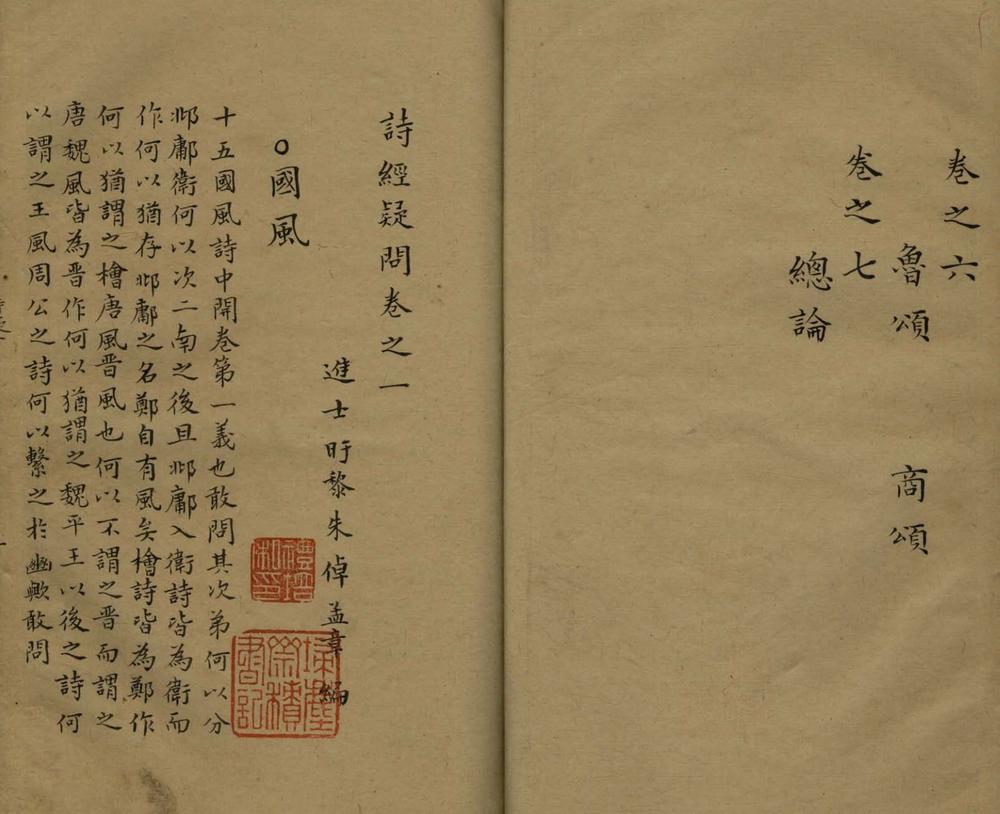 卷之六
魯頌 商頌
卷之七
總論
詩經疑問卷之一
進士盱黎朱倬孟章編
國風
十五國風詩中開卷第一義也敢問其次第何以分
邶鄘衛何以次二南之後且邶鄘入衛詩皆為衛而
作何以猶存邶鄘之名鄭自有風矣檜詩皆為鄭作
何以猶謂之檜唐風晋風也何以不謂之晋而謂之
唐魏風皆為晋作何以猶謂之魏平王以後之詩何
以謂之王風周公之詩何以繫之於豳歟敢問